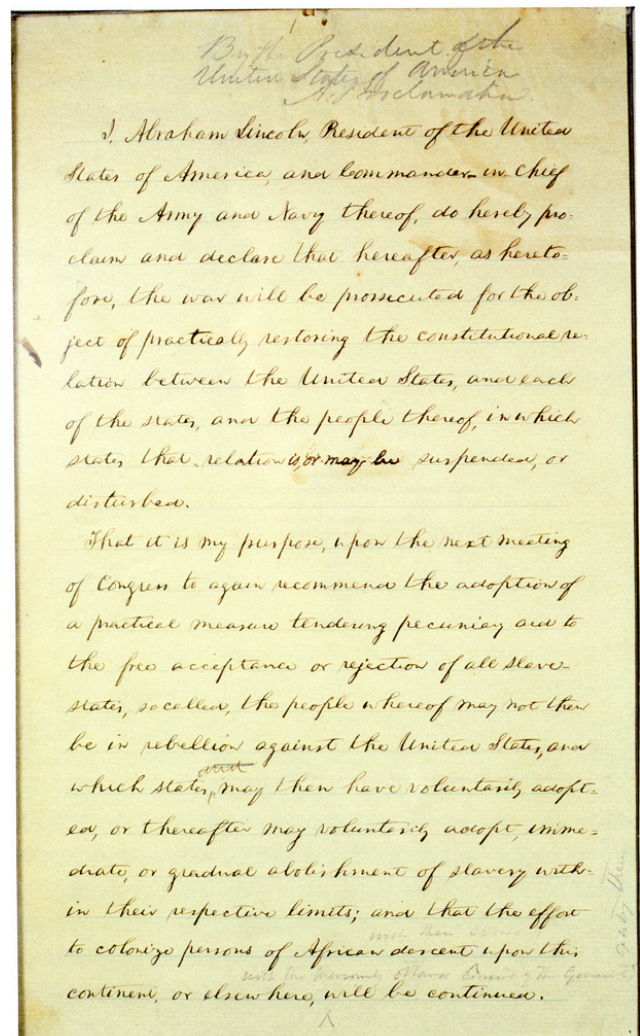 By the President of the
United States of America
A Proclamation.
I, Abraham Lincoln, President of the United
States of America, and Commander-in-Chief
of the Army and Navy thereof, do hereby pro-
claim and declare that hereafter, as hereto-
fore, the war will be prossecuted for the ob-
ject of practically restoring the constitutional re-
lation between the United States, and each
of the states, and the people thereof, in which
states that relation is, or may be suspended, or
disturbed.
That it is my purpose, upon the next meeting
of Congress to again recommend the adoption of
a practical measure tendering pecuniary aid to
the free acceptance or rejection of all slave-
states, so called, the people whereof may not then
be in rebellion against the United States, and
and
which states, may then have voluntarily adopt-
ed, or thereafter may voluntarily adopt, imme-
diate, or gradual abolishment of slavery with-
in their respective limits; and that the effort
with their
to colonize persons of African descent upon this
continent, or elsewhere, will be continued.